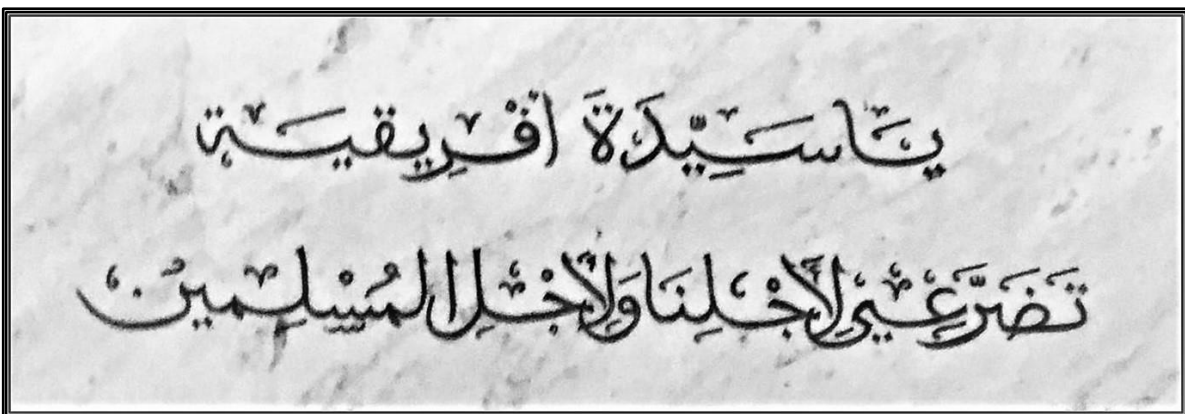 يَا سَيِّدَةَ افْرِيقيَة
تَضَرَّعِي لِأَجْلِنَا وَلِأَجْلِ المُسْلِمِين